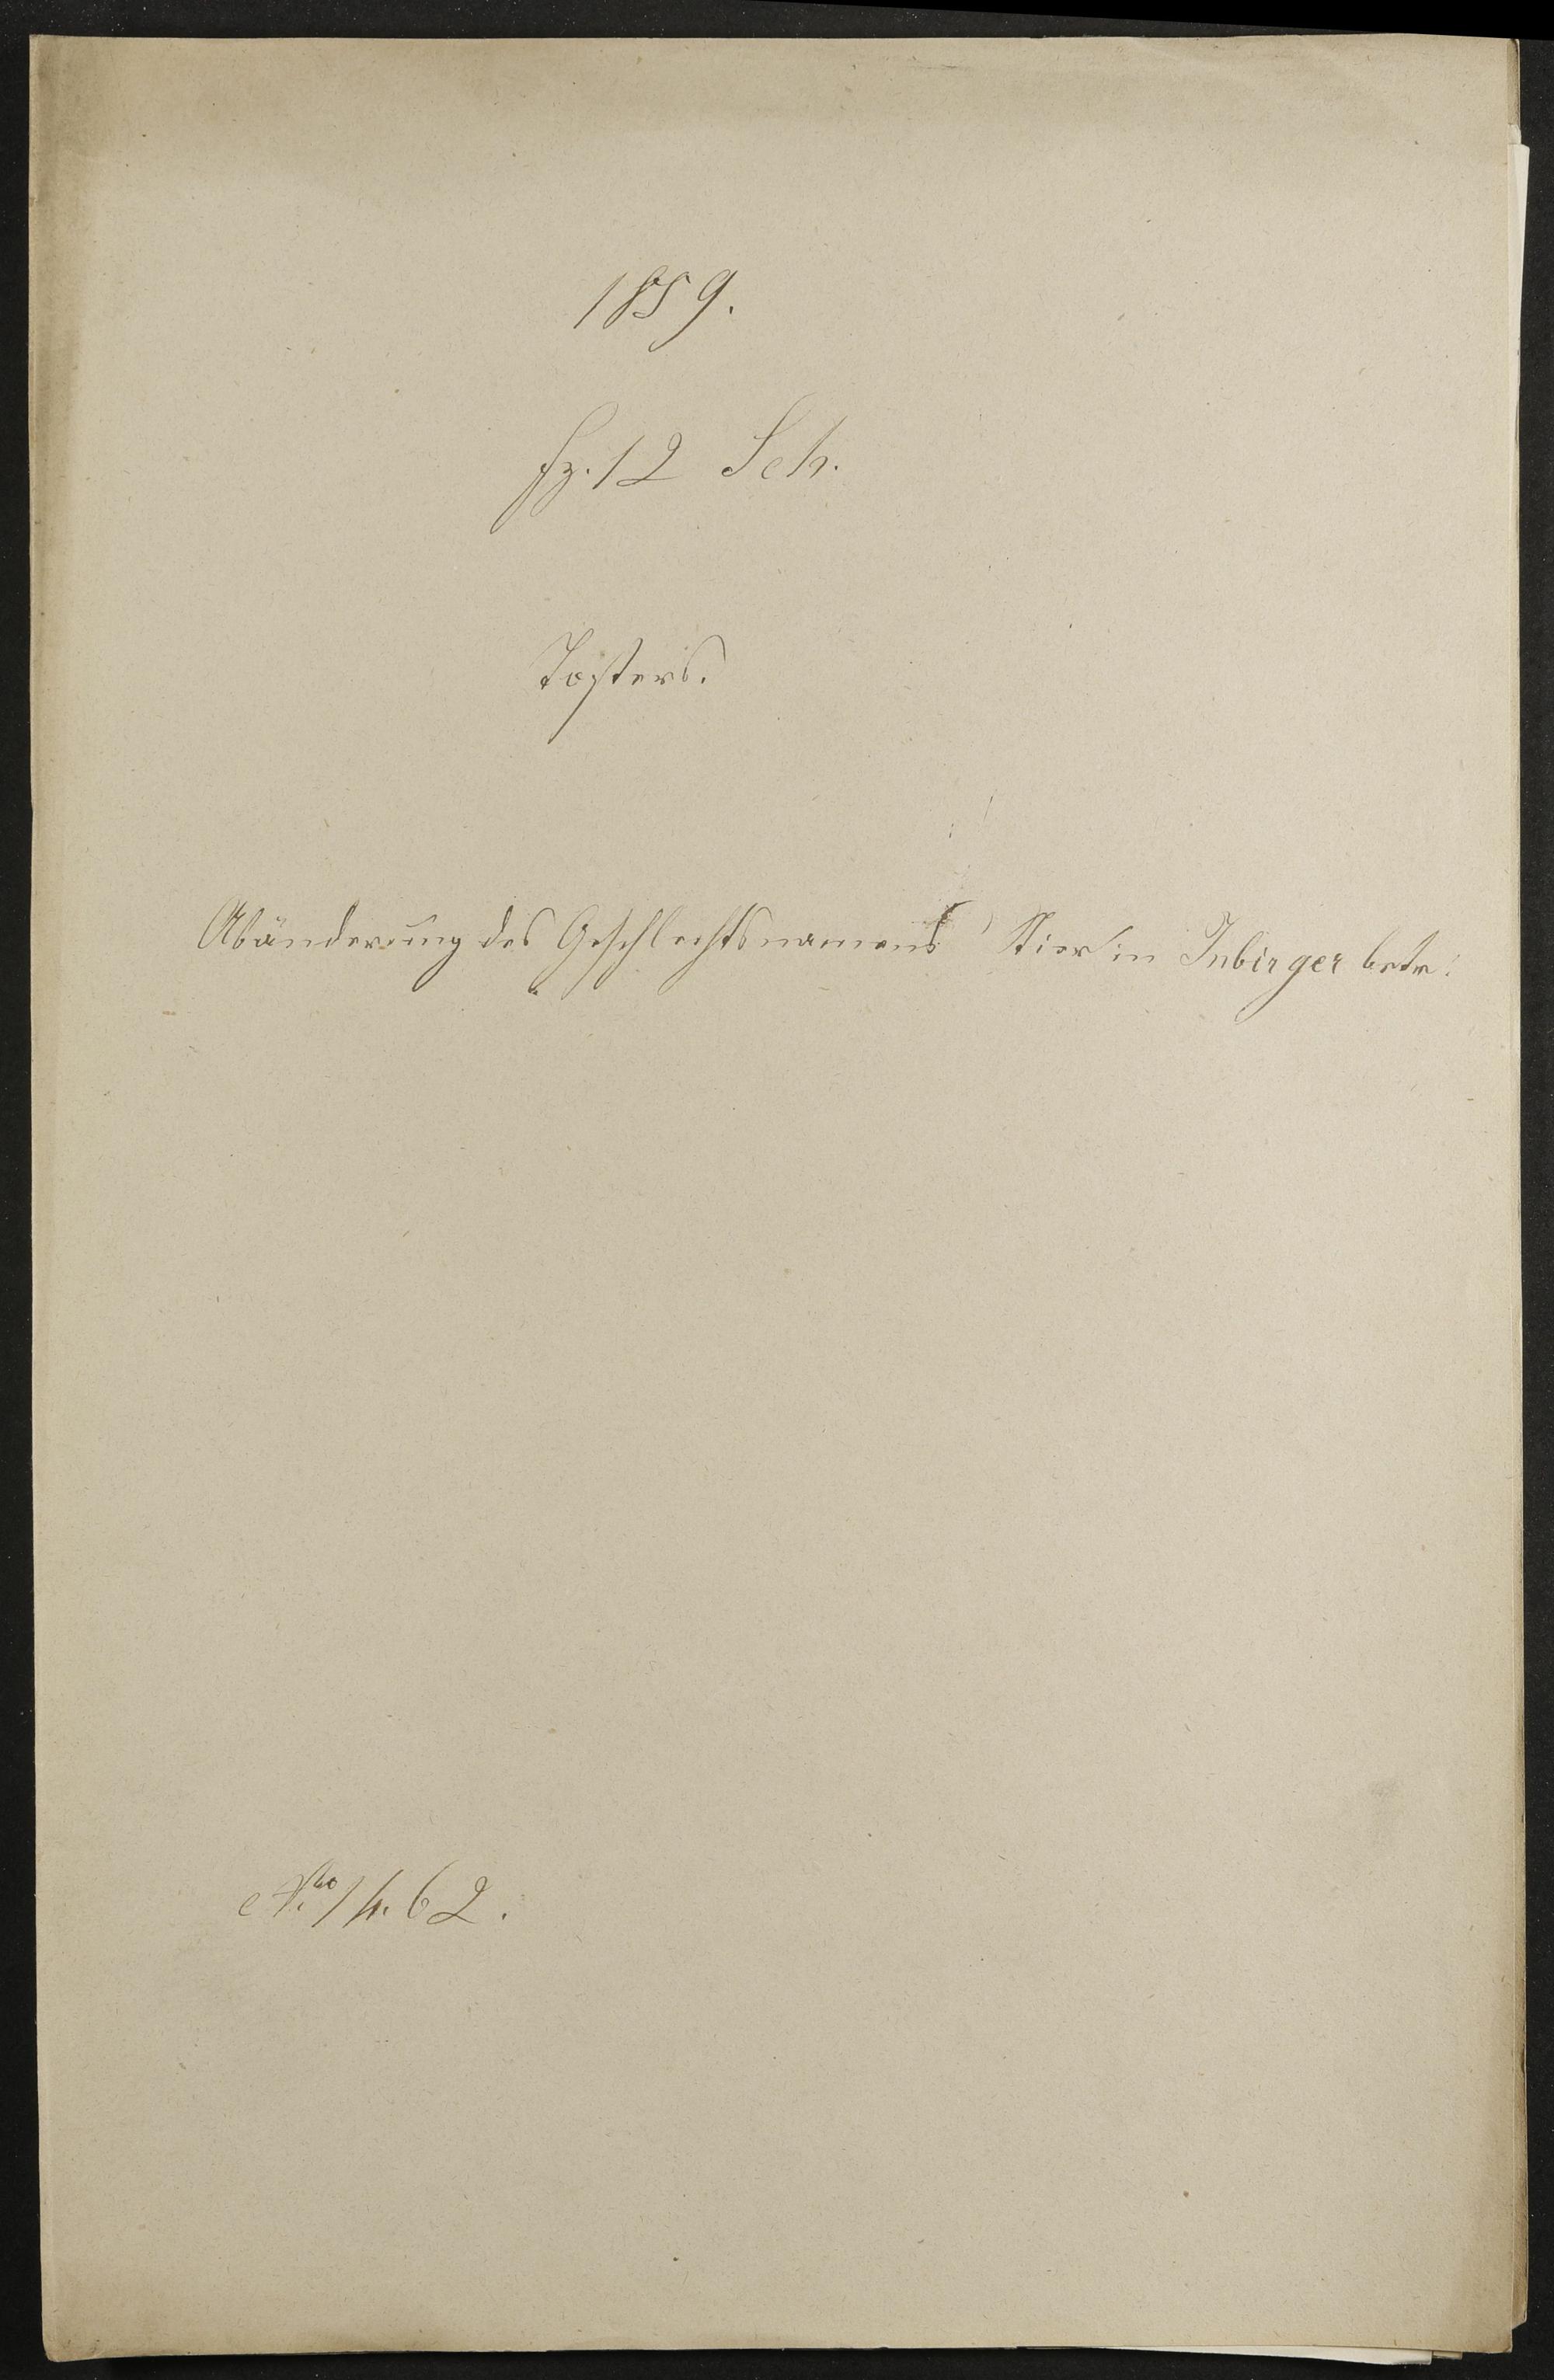 1859.
Fz. 12 Sch.
Tosters.
Abänderung des Geschlechtsnamens Stier in Inbirger betr:
No 1462.